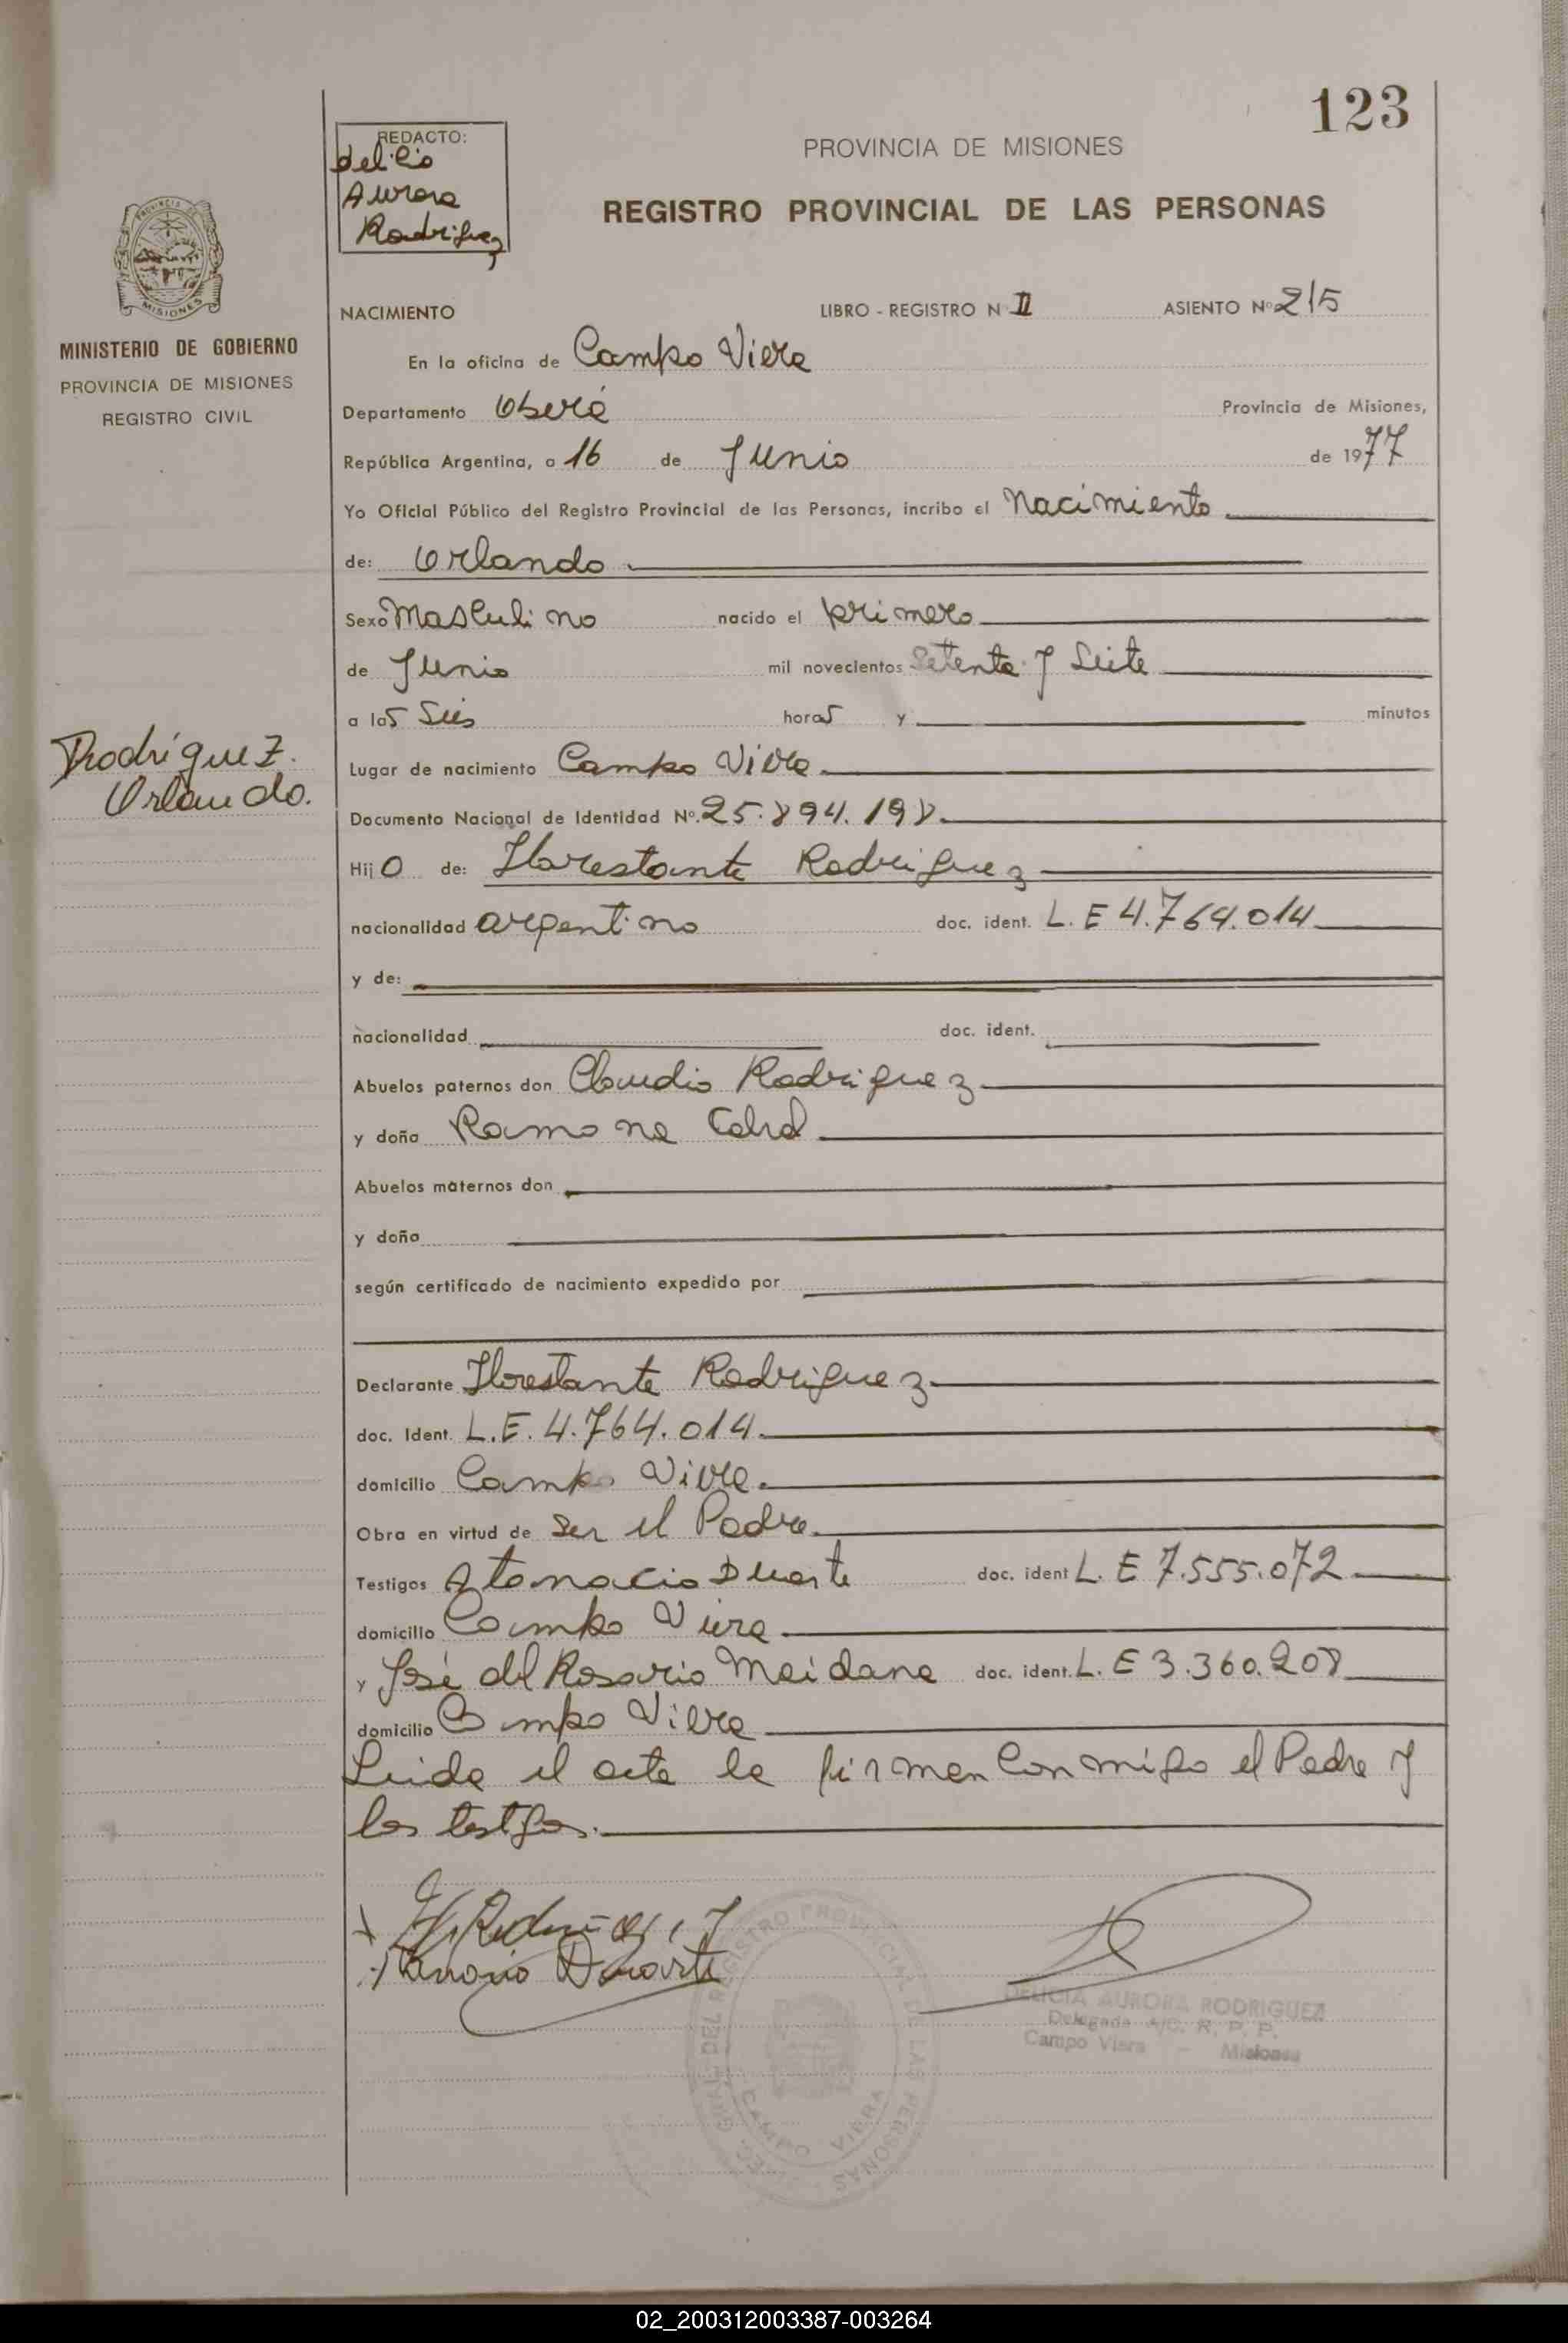 123
REDACTO:
Delicia
Aurora
Rodriguez
PROVINCIA DE MISIONES
REGISTRO PROVINCIAL DE LAS PERSONAS
PROVINCIA DE
MISIONES
MINISTERIO DE GOBIERNO
PROVINCIA DE MISIONES
REGISTRO CIVIL
NACIMIENTO LIBRO - REGISTRO N II ASIENTO Nº 215
En la oficina de Campo Viera
Departamento Oberá Provincia de Misiones,
República Argentina, a 16 de Junio de 1977
Yo Oficial Público del Registro Provincial de las Personas, incribo el Nacimiento
de: Orlando
Sexo Masculino nacido el primero
de Junio mil novecientos Setenta y Siete
a las Seis horas y minutos
Rodríguez.
Orlando.
Lugar de nacimiento Campo Viera
Documento Nacional de Identidad Nº. 25.894.198.
Hijo de: Florestante Rodriguez
nacionalidad argentino doc. ident. L. E 4.764.014
y de:
nacionalidad doc. ident.
Abuelos paternos don Claudio Rodriguez
y doña Ramona Cabral
Abuelos maternos don
y doña
según certificado de nacimiento expedido por
Declarante Florestante Rodriguez
doc. Ident. L.E. 4.764.014
domicilio Campo Viera.
Obra en virtud de Ser el Padre
Testigos Atanacio Duarte doc. ident L. E 7.555.072
domicilio Campo Viera
y José del Rosario Maidana doc. ident. L. E 3.360.208
domicilio Campo Viera
Leida el acta la firman Conmigo el Padre y
los testgos.
Duarte
DELICIA AURORA RODRIGUEZ
Delegada A/C. R. P. P.
Campo Viera - Misiones
REGISTRO PROVINCIAL DE LAS PERSONAS
CAMPO VIERA
02_200312003387-003264